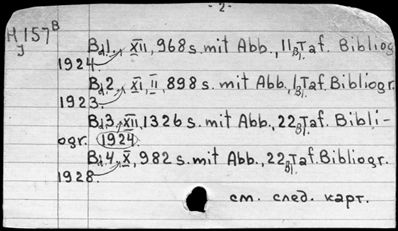 - 2 -
М 157 В
J
Bd 1., XII, 968 s. mit Abb., 11 Bl. Taf. Bibliogr.
1924
Bd 2., XI, II, 898 s. mit Abb., 1 Bl. Taf. Bibliogr.
1923.
Bd 3., XII, 1326 s. mit Abb., 22 Bl. Taf. Bibli-
ogr. 1924
Bd. 4., X, 982 s. mit Abb., 22 Bl. Taf. Bibliogr.
1928.
см. след. карт.